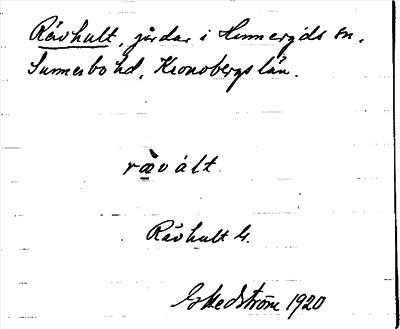 Rävhult, gårdar i Hinneryds sn.
Sunnerbo hd, Kronobergs län.
ràvált
Rävhult 4.
Hedström 1920